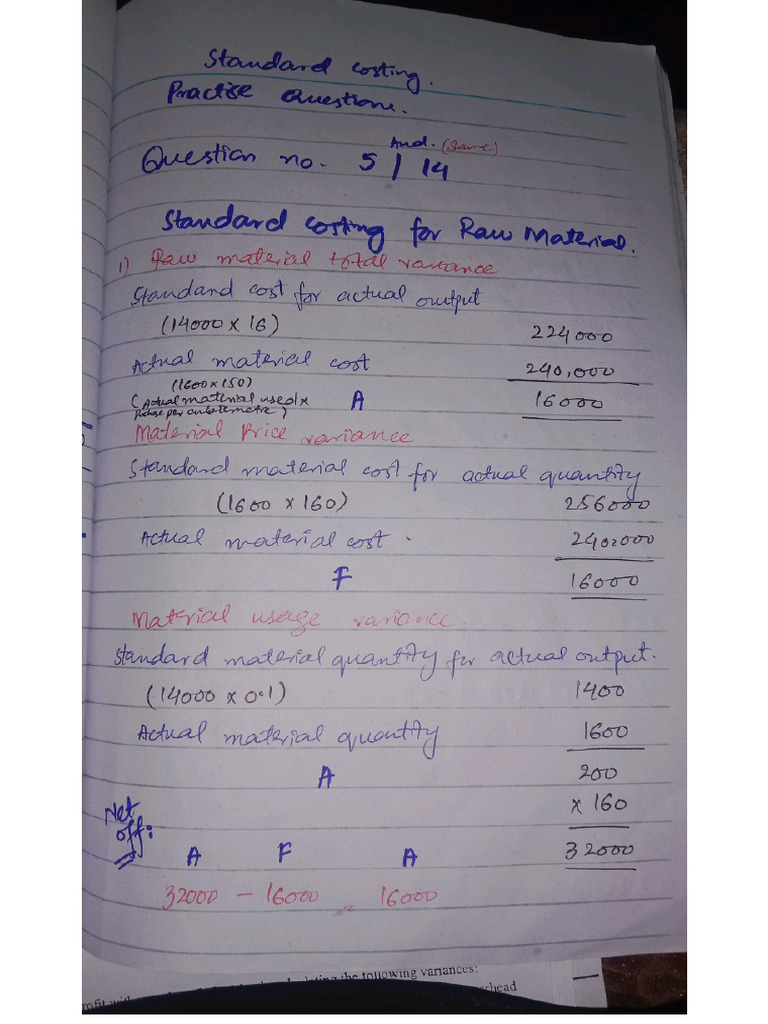 Standard costing.
Practise Question.
And. (Same)
Question no. 5 | 14
Standard costing for Raw Material.
1) Raw material total variance
Standard cost for actual output
(14000 x 16) 224000
Actual material cost 240,000
(1600 x 150)
(Actual material used x A 16000
per cubic metre)
Material Price variance
Standard material cost for actual quantity
(1600 x 160) 256000
Actual material cost. 240,000
F 16000
Material usage variance.
Standard material quantity for actual output.
(14000 x 0.1) 1400
Actual material quantity 1600
A 200
x 160
Net off: 32000
A F A
32000 - 16000 = 16000
the following variances: